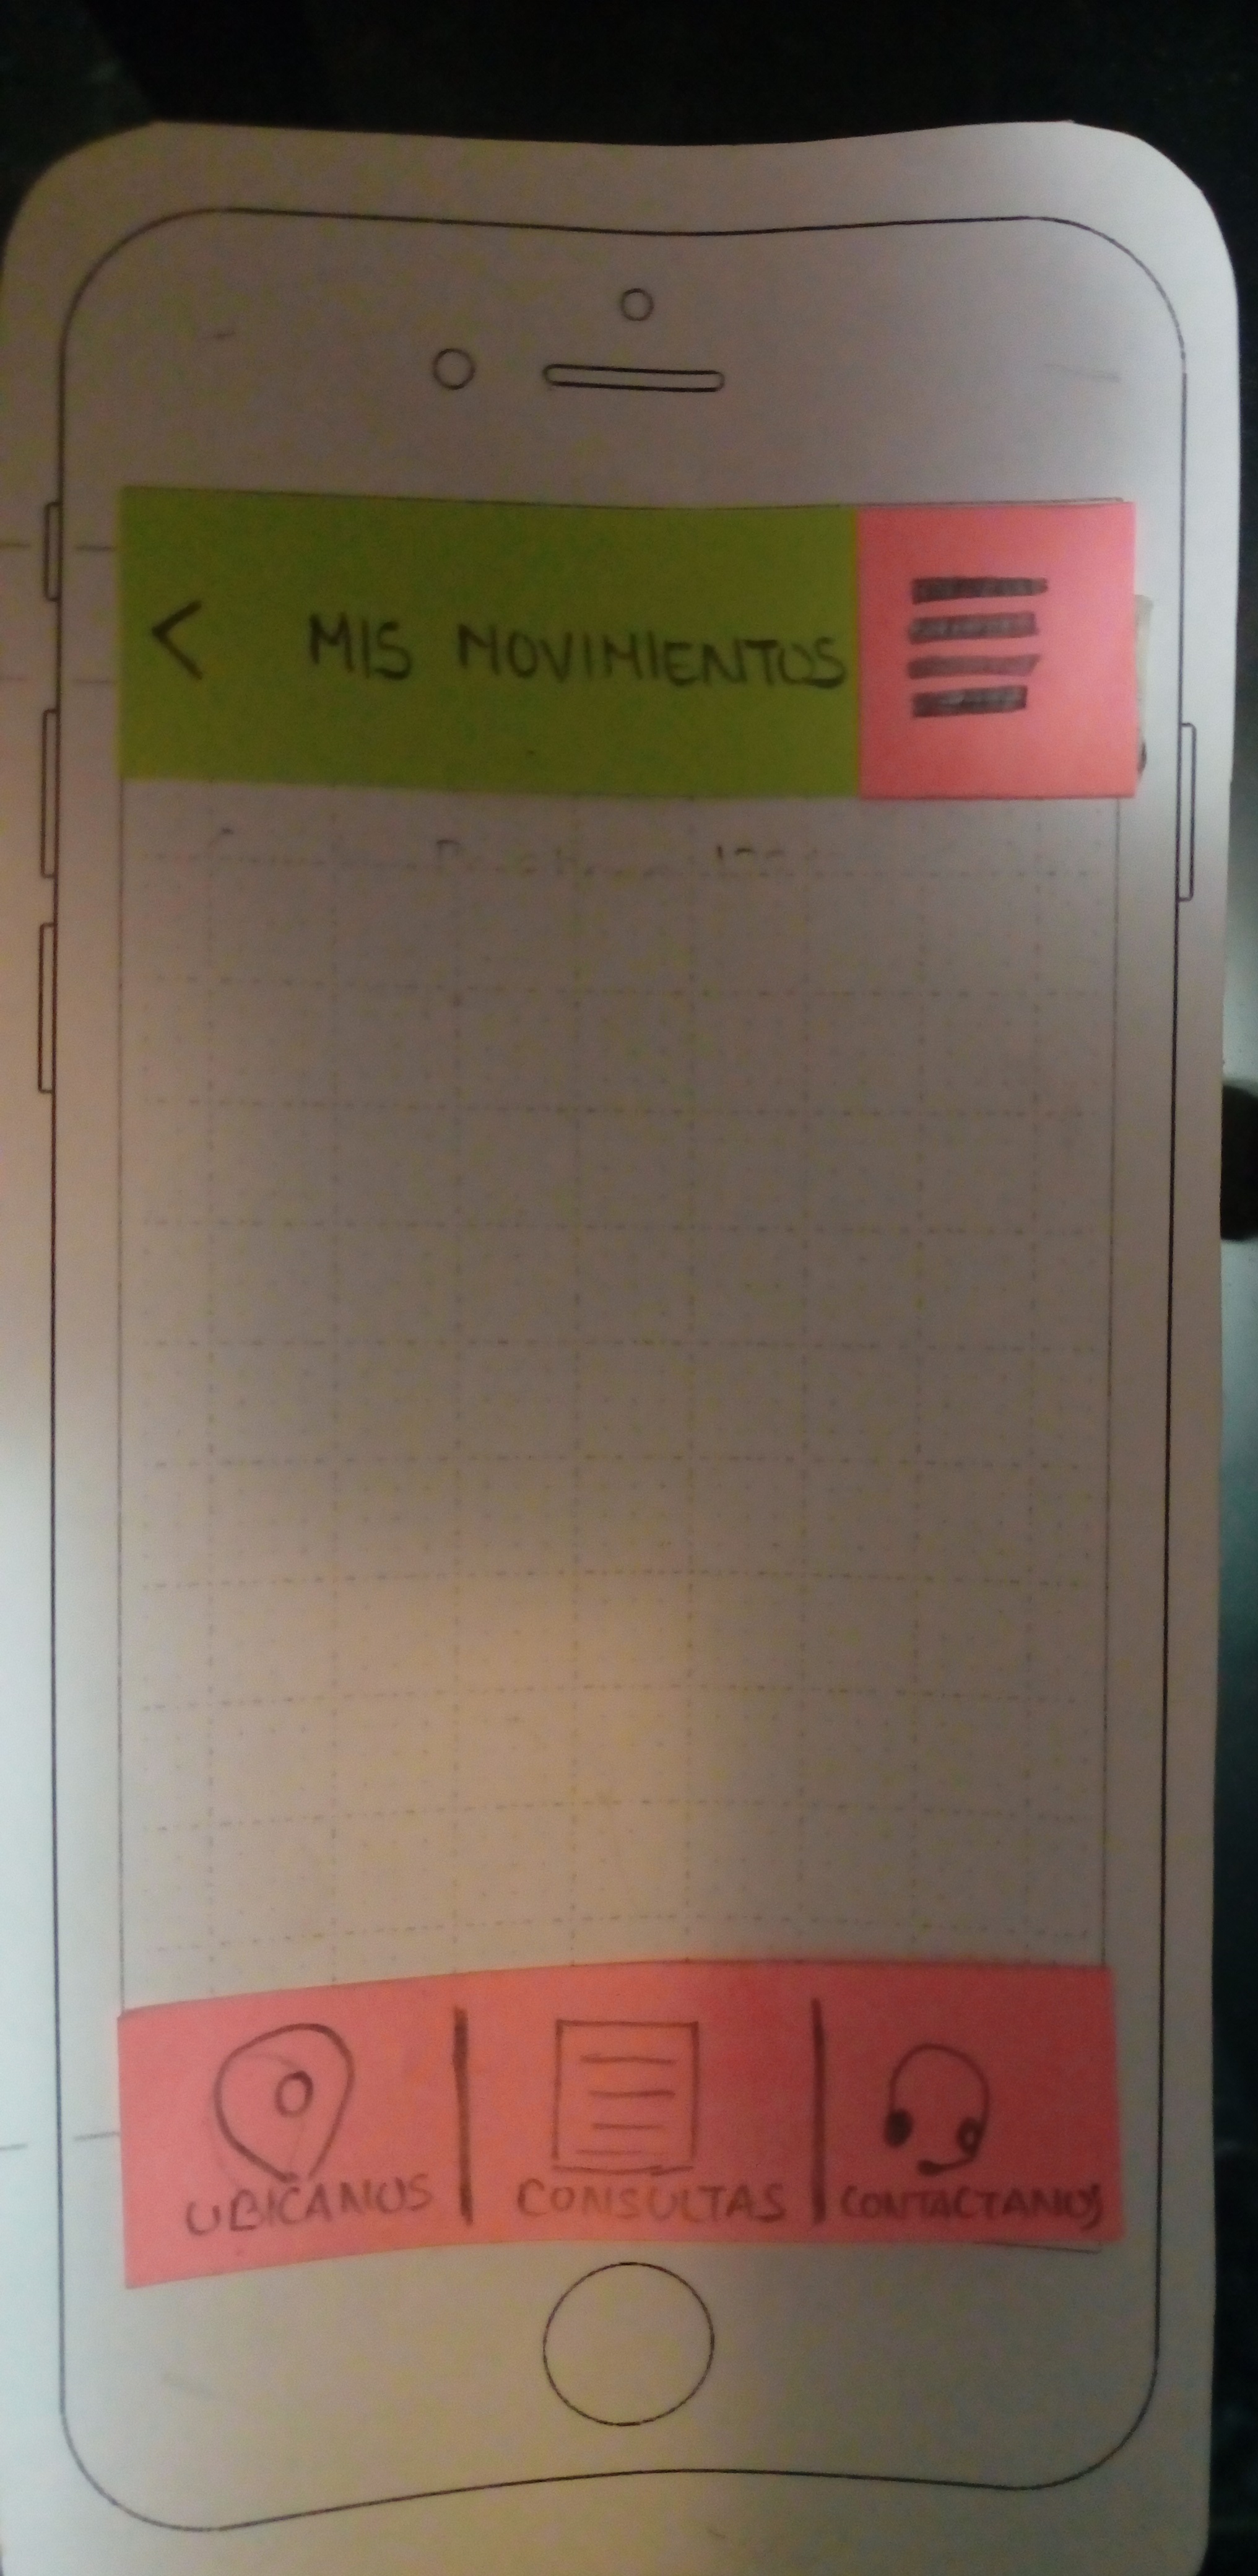 < MIS MOVIMIENTOS
UBICANOS CONSULTAS CONTACTANOS